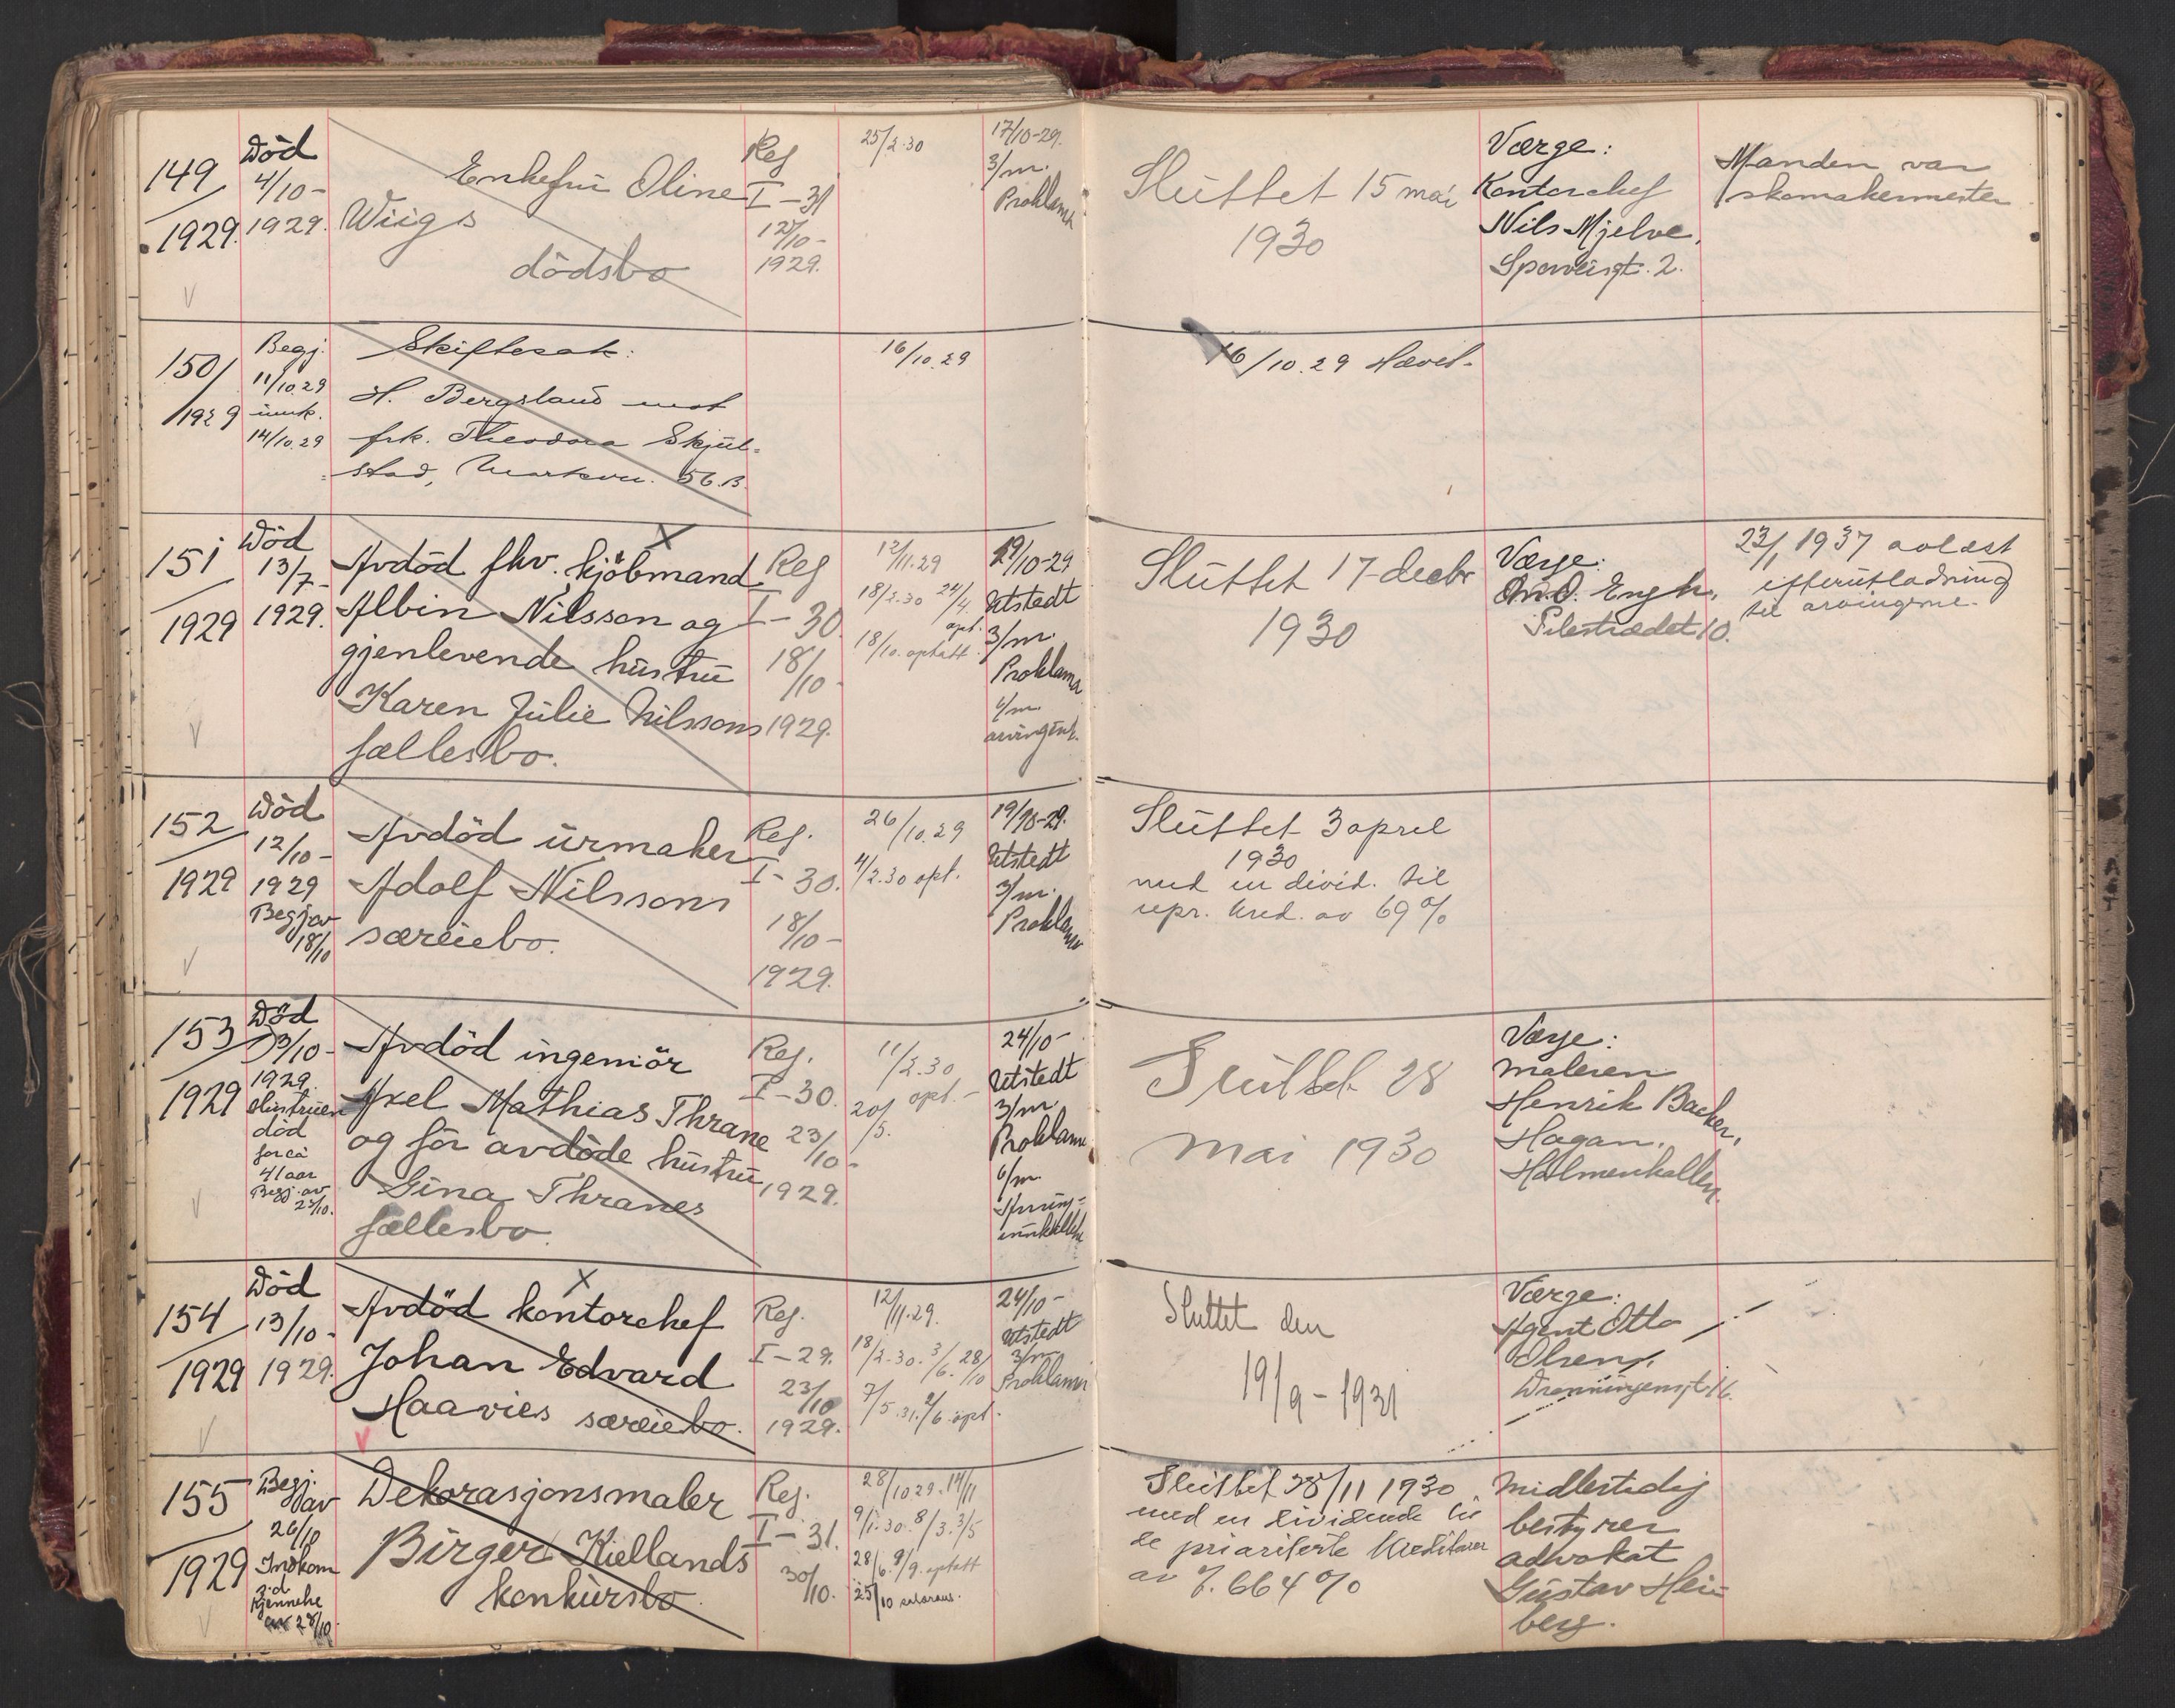 149
1929.
Död
4/10-
1929.
Enkefru Oline
Wiigs
dödsbo
Reg
I-31
1929.
25/2.30
17/10-29.
3/m.
Proklama
Sluttet 15 mai
1930
Værge:
Kontorchef
Nils Mjelve,
2.
Manden var
skomakermester
150/
1929
Begj.
11/10.29
innk.
14/10.29
Skiftesak:
H. Bergsland mot
frk. Theodora Skjul-
stad, Markvn. 56.B.
16/10.29
16/10.29 Hævet.
151
1929
Död
13/7-
1929.
Avdöd fhv. kjöbmand
Albin Nilsson og
gjenlevende hustru
Karen Julie Nilssons
fællesbo.
Reg
I-30.
18/10-
1929.
12/11.29
18/2.30 24/4.
opt.
18/10. optatt.
19/10-29
Utstedt
3/m.
Proklama
6/m.
Sluttet 17 decbr
1930
Værge:
O. Engh,
Pilestrædet 10.
23/1 1937 avlæst
efterutlodning
til arvingerne.
152
1929
Död
12/10-
1929
Begj av
18/10
Avdöd urmaker
Adolf Nilssons
særeiebo.
Reg.
I-30.
18/10-
1929.
26/10.29
4/2.30 opt.
19/10-29.
Utstedt
3/m.
Proklama
Sluttet 3 april
1930
med en divid. til
upr. kred. av 69%
153
1929
Död
1929.
Hustruen
död
for ca
41 aar
Begj. av
23/10.
Avdöd ingeniör
Axel Mathias Thrane
og før avdöde hustru
Gina Thranes
fællesbo.
Reg.
I-30.
23/10-
1929.
11/2.30
opt.-
20/5.
24/10-
Utstedt
3/m.
Proklama
6/m.
Arving-
innkallelse
Sluttet 28
mai 1930
Værge:
maleren
Henrik Backer,
Hagan,
Holmenkollen.
154
1929
Död
13/10-
1929.
Avdöd kontorchef
Johan Edvard
Haavies særeiebo.
Reg.
I-29.
23/10
1929.
12/11.29.
18/2.30. 3/6. 28/10
7/5.31. 2/6. opt.
24/10-
Utstedt
3/m.
Proklama
Sluttet den
19/9-1931
Værge:
Agent Otto
Olsen,
Dronningensgt 16.
155
1929
Begj.
av
26/10
Innkom
Kjennelse
av 28/10.
Dekorasjonsmaler
Birger Kiellands
konkursbo.
Reg.
I-31.
30/10.
28/10 29. 14/11
9/1.30. 8/3. 3/5
28/6. 9/9. optatt
25/10
Sluttet 28/11 1930
med en dividende til
de prioriterte kreditorer
av 7.664%
Midlertidig
bestyrer
advokat
Gustav Hei-
berg.